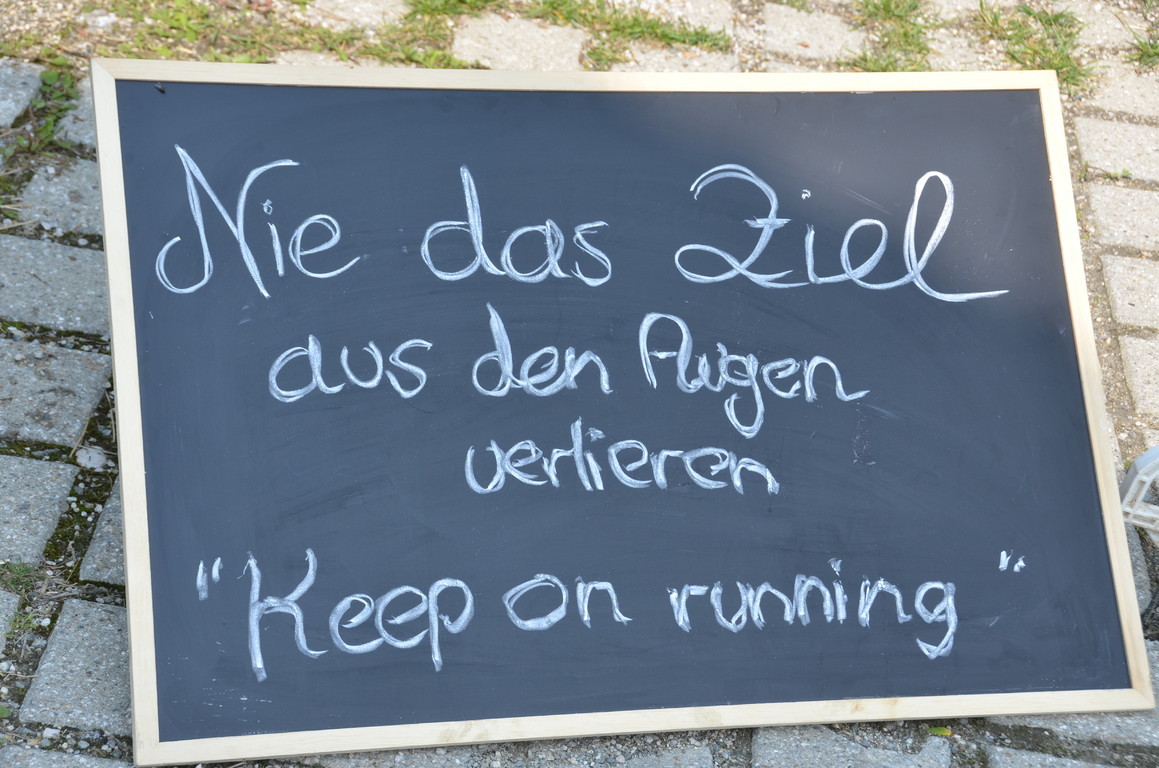 Nie das Ziel
aus den Augen
verlieren
"Keep on running"